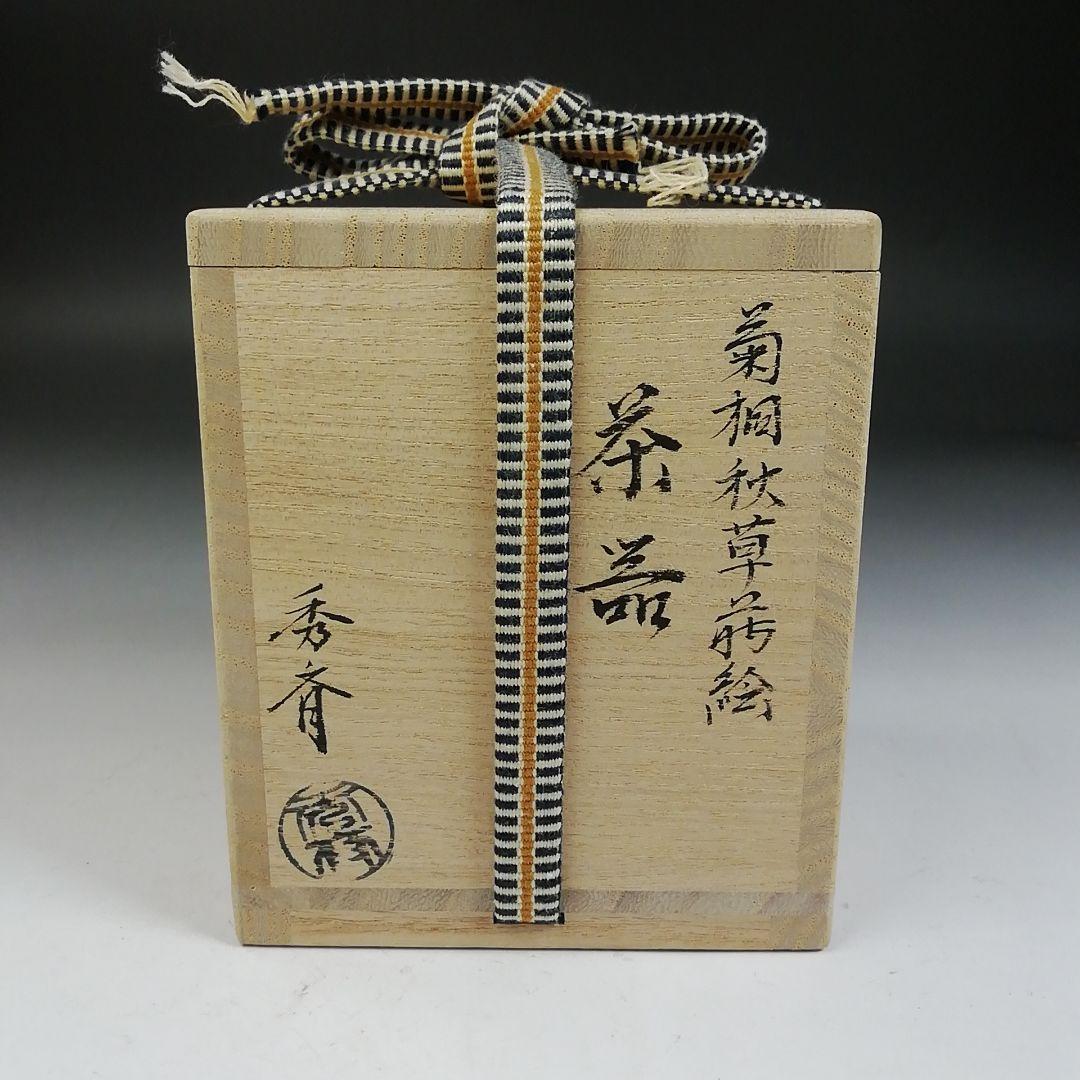 菊桐秋草蒔絵
茶器
秀斉